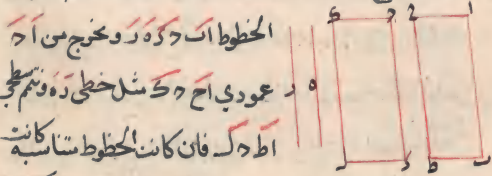 الخطوط اب حد ه ر ونخرج من ا ح
عمودي اح حك مثل خطي ر ه ونتم سطحي
اط حل فان كانت الخطوط متناسبة كانت
ا ح ح ك
ه ر
ب ط د ل